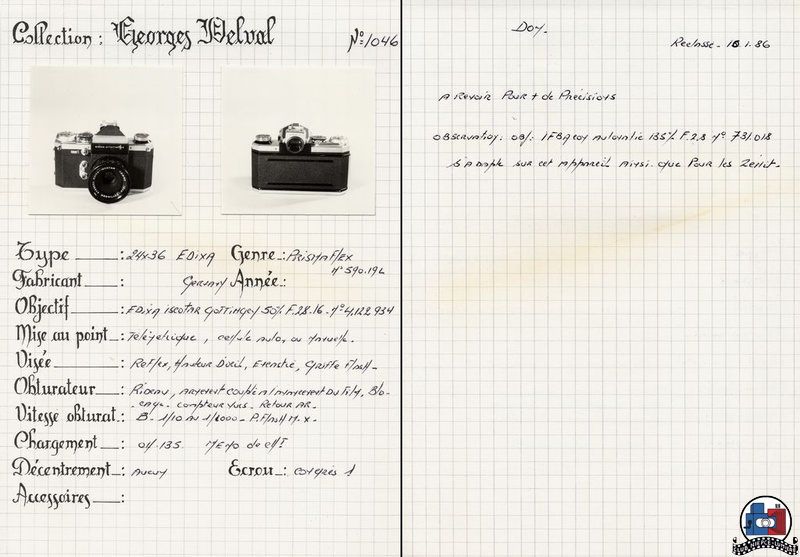 Collection : Georges Delval N° 1046
Type : 24x36 EDIXA Genre : PRISMAFLEX
N° 590.194
Fabricant : Germany Année :
Objectif : EDIXA ISCOTAR GÖTTINGEN 50% F.2.8.16. N° 4,122,934
Mise au point : Télémétrique, cellule auto, ou manuelle.
Visée : Reflex, Hauteur D'oeil, Griffe Flash.
Obturateur : Rideau, armement couplé à l'avancement Du Film, Blo-
cage. compteur vues. Retour AR.
Vitesse obturat. : B. 1/10 au 1/1000 - P. Flash M. X.
Chargement : off. 135. Memo de
Décentrement : Aucun Ecrou : congrès 1
Accessoires :
Don.
Reclasse. 10.1.86
A Revoir Pour + de Précisions
Observation : obj : automatic 135% F.2.8 N° 731.018
s'adapte sur cet appareil ainsi que Pour les Zenit.